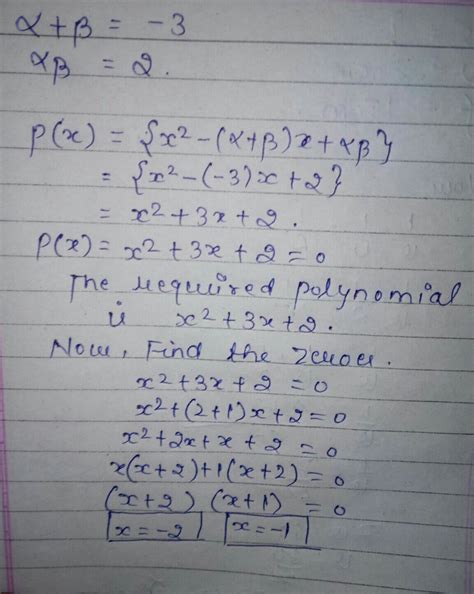 α+β = -3
αβ = 2.
P(x) = {x²-(α+β)x+αβ}
= {x²-(-3)x+2}
= x²+3x+2.
P(x) = x²+3x+2=0
The required polynomial
is x²+3x+2.
Now, Find the zeroes.
x²+3x+2 = 0
x²+(2+1)x+2=0
x²+2x+x+2 = 0
x(x+2)+1(x+2)=0
(x+2) (x+1) = 0
x=-2 x=-1